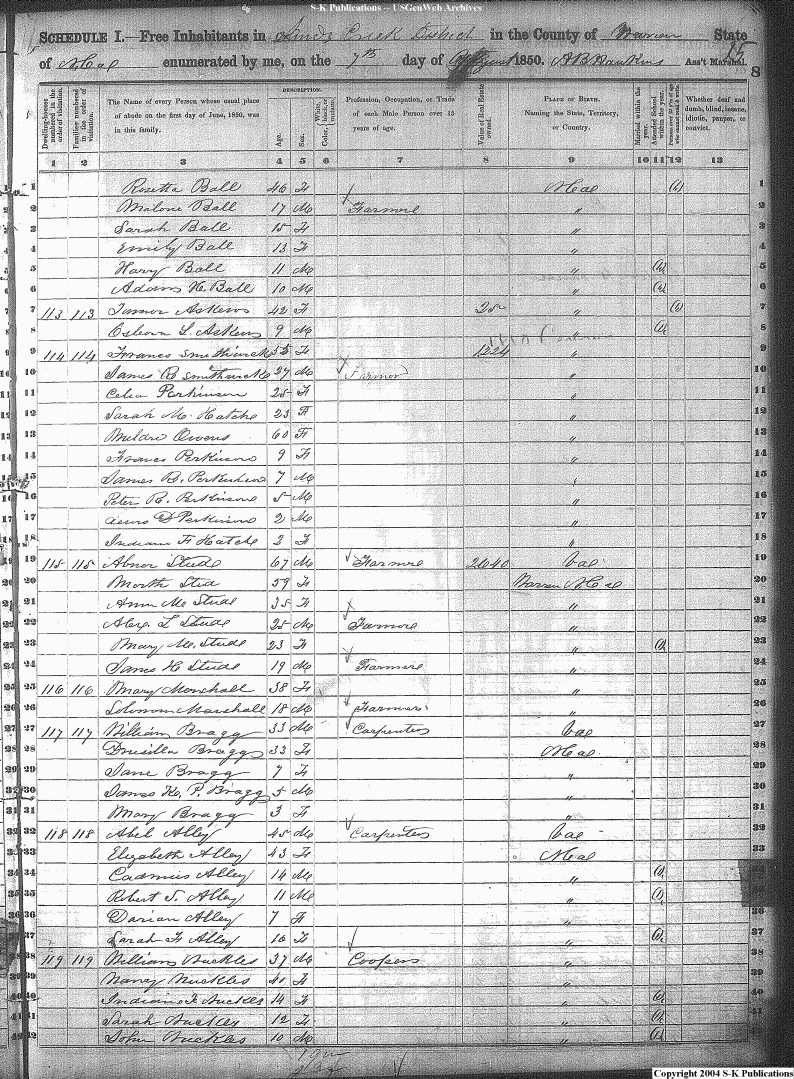 S-K Publications -- USGenWeb Archives
SCHEDULE I.—Free Inhabitants in Sandy Creek District in the County of Warren State
of N Ca enumerated by me, on the 7th day of August 1850. Ass't Marshal. 15
8
DESCRIPTION.
Dwelling-houses numbered in the order of visitation.
Families numbered in the order of visitation.
The Name of every Person whose usual place of abode on the first day of June, 1850, was in this family.
Age.
Sex.
Color, White, black, or mulatto.
Profession, Occupation, or Trade of each Male Person over 15 years of age.
Value of Real Estate owned.
PLACE OF BIRTH. Naming the State, Territory, or Country.
Married within the year.
Attended School within the year.
Persons over 20 y'rs of age who cannot read & write.
Whether deaf and dumb, blind, insane, idiotic, pauper, or convict.
1 2 3 4 5 6 7 8 9 10 11 12 13
1 Rosetta Ball 46 F N Ca (1) 1
2 Malone Ball 17 M Farmore " 2
3 Sarah Ball 15 F " 3
4 Emily Ball 13 F " 4
5 Hary Ball 11 M " (1) 5
6 Adams H. Ball 10 M " (1) 6
7 113 113 Askews 42 F 25 " (1) 7
8 Osborn L. Askews 9 M " (1) 8
9 114 114 Frances Smithwick 55 F 1224 " 9
10 James R Smithwick 27 M Farmor " 10
11 Celia Perkinson 25 F " 11
12 Sarah M. Hatche 23 F " 12
13 Owens 60 F " 13
14 Frances Perkinson 9 F " 14
15 James B. Perkinson 7 M " 15
16 Peter R. Perkinson 5 M " 16
17 Perkinson 2 M " 17
18 Indiana F Hatche 2 F " 18
19 115 115 Abner Stude 67 M Farmre 2640 Va 19
20 Marth Stud 59 F Warren N Ca 20
21 Ann M. Stude 35 F " 21
22 Alex. L Stude 25 M Farmore " 22
23 Mary M. Stude 23 F " (1) 23
24 James H Stude 19 M Farmere " 24
25 116 116 Mary Marshall 38 F " 25
26 Solomon Marshall 18 M Farmers " 26
27 117 117 William Bragg 33 M Carpenters Va 27
28 Drusilla Bragg 33 F N Ca 28
29 Jane Bragg 7 F " 29
30 James K. P. Bragg 5 M " 30
31 Mary Bragg 3 F " 31
32 118 118 Abel Alley 45 M Carpenters Va 32
33 Elizabeth Alley 43 F N Ca 33
34 Cadmus Alley 14 M " (1)
35 Robert T. Alley 11 M " (1) 35
36 Dorian Alley 7 F " 36
37 Sarah F Alley 16 F " (1) 37
38 119 119 William Nuckles 37 M Coopers " 38
39 Nancy Nuckles 41 F " 39
40 Indiana F Nuckles 14 F " (1) 40
41 Sarah Nuckles 12 F " (1) 41
42 John Nuckles 10 M " (1)
Copyright 2004 S-K Publications